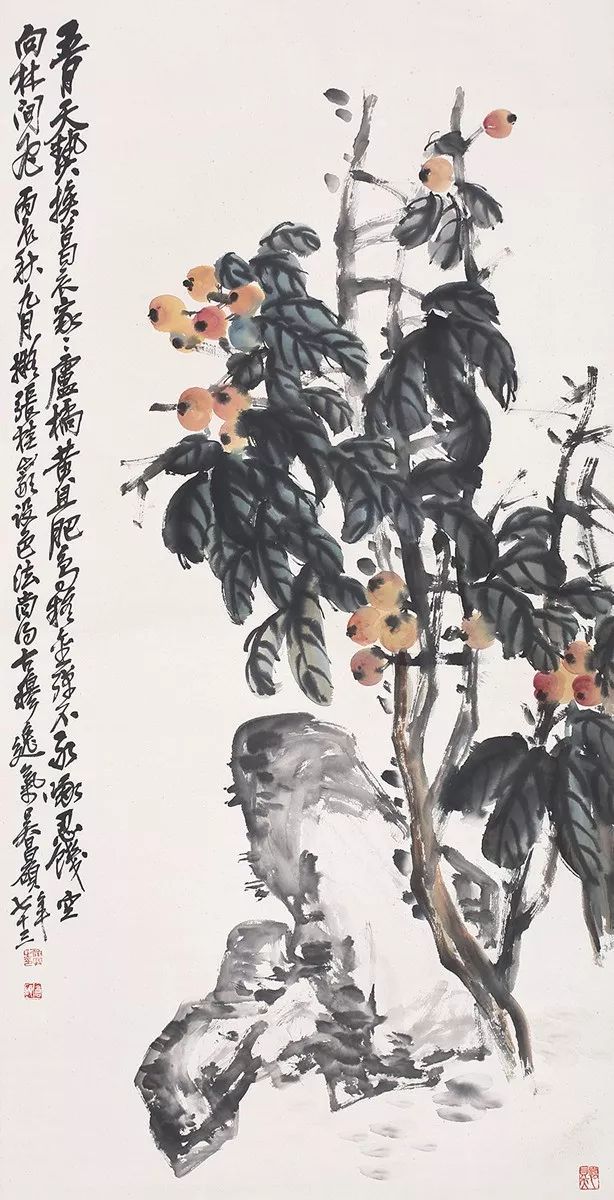 五月天熱換葛衣家〻盧橘黄且肥鳥疑金彈不敢啄忍饑空
向林間飛 丙辰秋九月擬張桂巖設色法尚得古穆逸氣吴昌碩年七十三